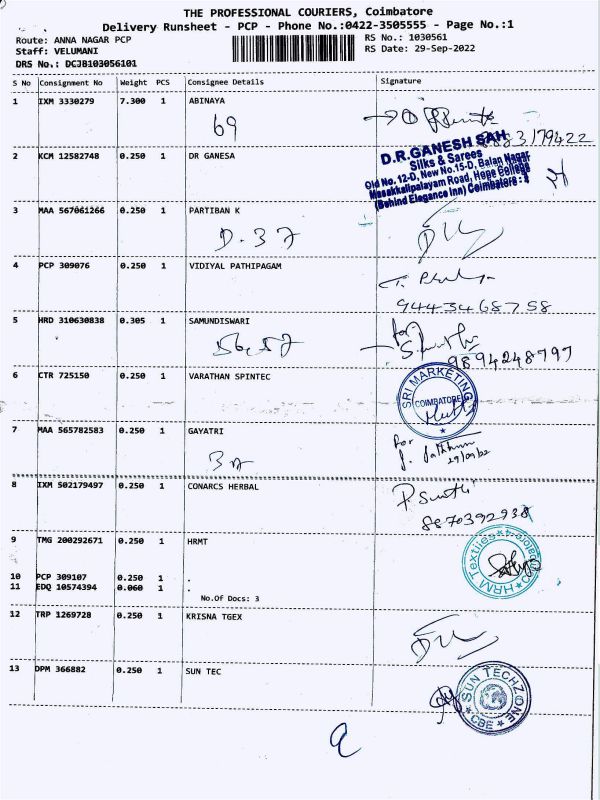 THE PROFESSIONAL COURIERS, Coimbatore
Delivery Runsheet - PCP - Phone No.:0422-3505555 - Page No.:1
Route: ANNA NAGAR PCP
RS No.: 1030561
Staff: VELUMANI
RS Date: 29-Sep-2022
DRS No.: DCJB103056101
S No Consignment No Weight PCS Consignee Details Signature
1 IXM 3330279 7.300 1 ABINAYA
69
2 KCM 12582748 0.250 1 DR GANESA
D.R.GANESH SAH
Silks & Sarees
Old No. 12-D, New No.15-D, Balan Nagar
Masakkalipalayam Road, Hope College
(Behind Elegance Inn) Coimbatore : 4
3 MAA 567061266 0.250 1 PARTIBAN K
D.37
4 PCP 309076 0.250 1 VIDIYAL PATHIPAGAM
9443468758
5 HRD 310630838 0.305 1 SAMUNDISWARI
for
9894248797
6 CTR 725150 0.250 1 VARATHAN SPINTEC
SRI MARKETING
COIMBATORE
7 MAA 565782583 0.250 1 GAYATRI
for
29/09/22
8 IXM 502179497 0.250 1 CONARCS HERBAL
8870392938
9 TMG 200292671 0.250 1 HRMT
HRM Textiles
10 PCP 309107 0.250 1 .
11 EDQ 10574394 0.060 1 .
No.Of Docs: 3
12 TRP 1269728 0.250 1 KRISNA TGEX
13 DPM 366882 0.250 1 SUN TEC
SUN TECHZONE
CBE